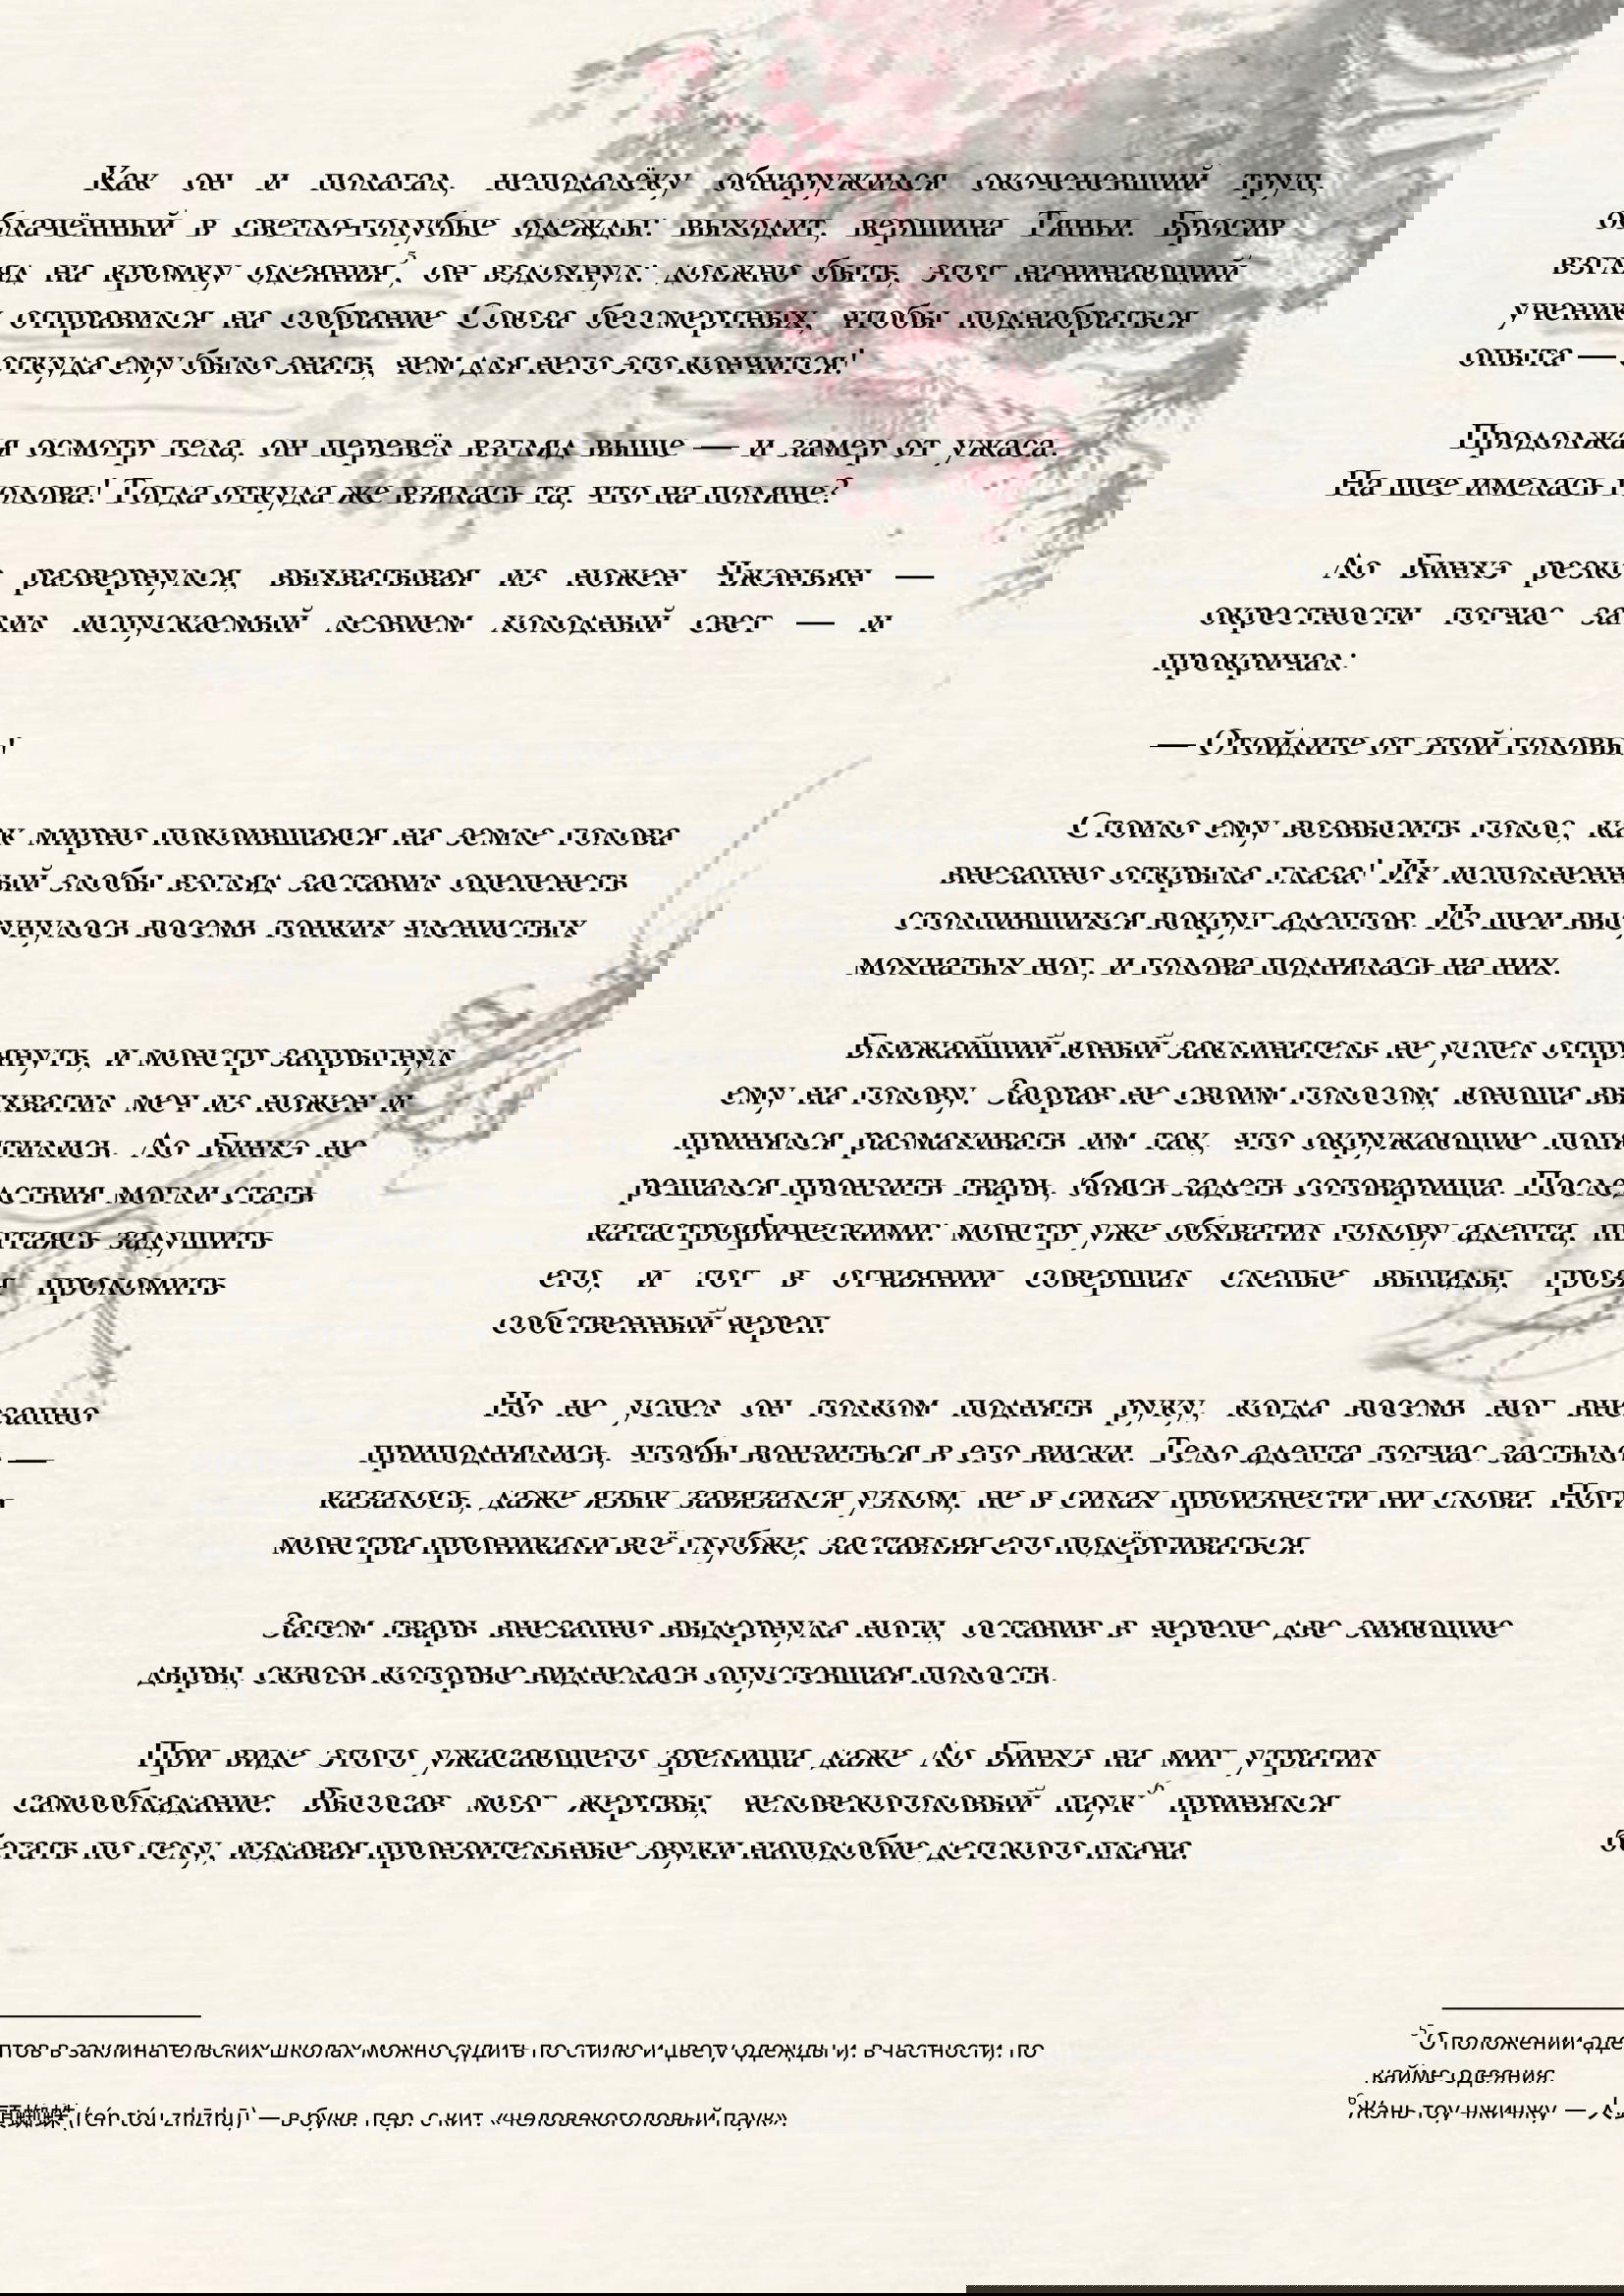 Как он и полагал, неподалёку обнаружился окоченевший труп,
облачённый в светло-голубые одежды: выходит, вершина Тяньи. Бросив
взгляд на кромку одеяния⁵, он вздохнул: должно быть, этот начинающий
ученик отправился на собрание Союза бессмертных, чтобы поднабраться
опыта — откуда ему было знать, чем для него это кончится!
Продолжая осмотр тела, он перевёл взгляд выше — и замер от ужаса.
На шее имелась голова! Тогда откуда же взялась та, что на поляне?
Ло Бинхэ резко развернулся, выхватывая из ножен Чжэнъян —
окрестности тотчас залил испускаемый лезвием холодный свет — и
прокричал:
— Отойдите от этой головы!
Стоило ему возвысить голос, как мирно покоившаяся на земле голова
внезапно открыла глаза! Их исполненный злобы взгляд заставил оцепенеть
столпившихся вокруг адептов. Из шеи высунулось восемь тонких членистых
мохнатых ног, и голова поднялась на них.
Ближайший юный заклинатель не успел отпрянуть, и монстр запрыгнул
ему на голову. Заорав не своим голосом, юноша выхватил меч из ножен и
принялся размахивать им так, что окружающие попятились. Ло Бинхэ не
решался пронзить тварь, боясь задеть сотоварища. Последствия могли стать
катастрофическими: монстр уже обхватил голову адепта, пытаясь задушить
его, и тот в отчаянии совершал слепые выпады, грозя проломить
собственный череп.
Но не успел он толком поднять руку, когда восемь ног внезапно
приподнялись, чтобы вонзиться в его виски. Тело адепта тотчас застыло —
казалось, даже язык завязался узлом, не в силах произнести ни слова. Ноги
монстра проникали всё глубже, заставляя его подёргиваться.
Затем тварь внезапно выдернула ноги, оставив в черепе две зияющие
дыры, сквозь которые виднелась опустевшая полость.
При виде этого ужасающего зрелища даже Ло Бинхэ на миг утратил
самообладание. Высосав мозг жертвы, человекоголовый паук⁶ принялся
бегать по телу, издавая пронзительные звуки наподобие детского плача.
⁵ О положении адептов в заклинательских школах можно судить по стилю и цвету одежды и, в частности, по
кайме одеяния.
⁶ Жэнь тоу чжичжу — (rén tóu zhīzhū) — в букв. пер. с кит. «человекоголовый паук».